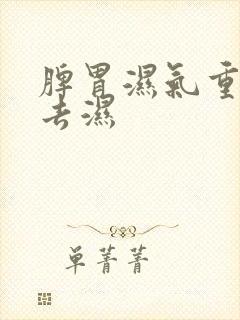 脾胃濕氣重
去濕
单菁菁